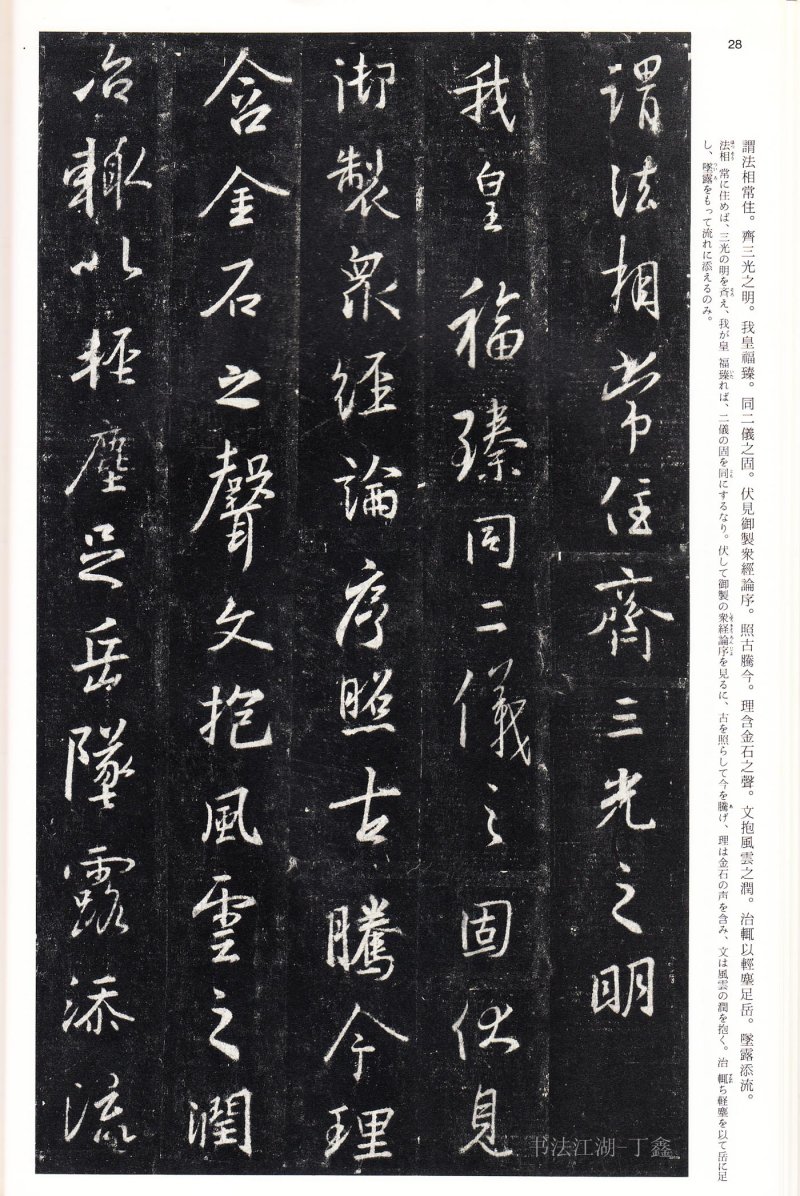 28
謂法相常住。齊三光之明。我皇福臻。同二儀之固。伏見御製衆經論序。照古騰今。理含金石之聲。文抱風雲之潤。治輒以輕塵足岳。墜露添流。
法相常に住めば、三光の明を斉え、我が皇福臻れば、二儀の固を同にするなり。伏して御製の衆経論序を見るに、古を照らして今を騰げ、理は金石の声を含み、文は風雲の潤を抱く。治輒ち軽塵を以て岳に足
し、墜露をもって流れに添えるのみ。
謂法相常住齊三光之明
我皇福臻同二儀之固伏見
御製衆經論序照古騰今理
含金石之聲文抱風雲之潤
治輒以輕塵足岳墜露添流
书法江湖-丁鑫